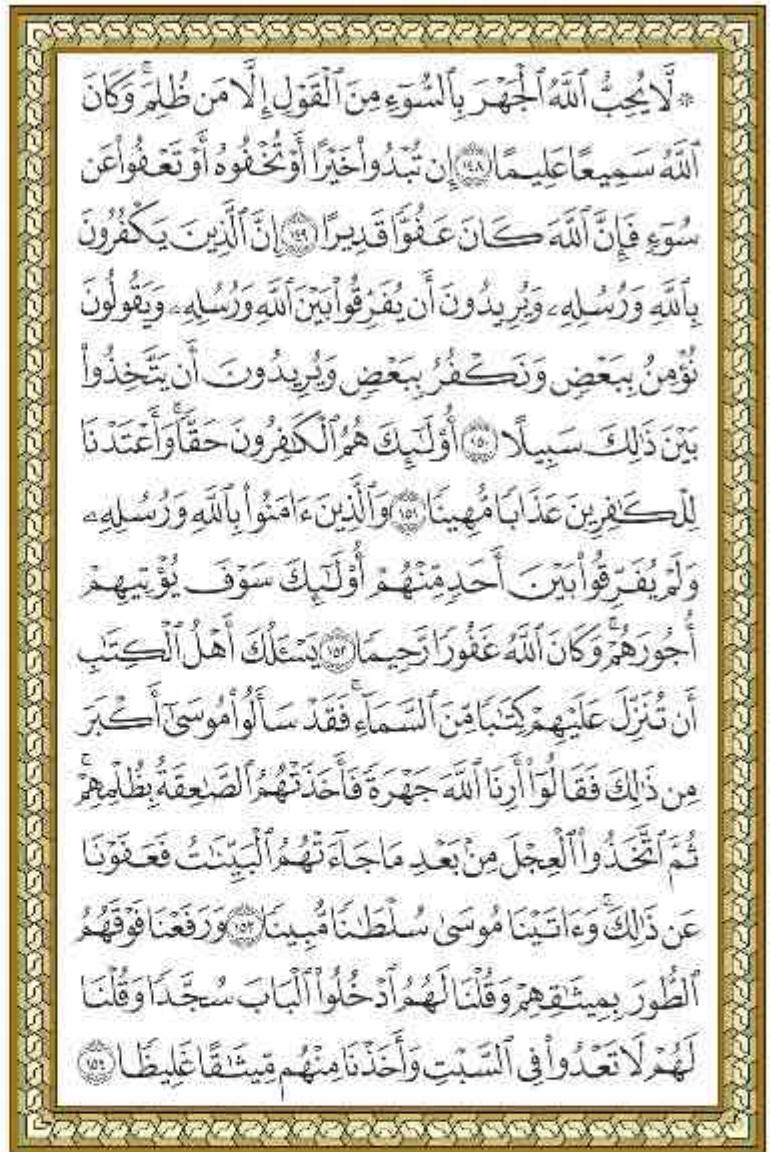 ۞ لَّا يُحِبُّ ٱللَّهُ ٱلْجَهْرَ بِٱلسُّوٓءِ مِنَ ٱلْقَوْلِ إِلَّا مَن ظُلِمَ ۚ وَكَانَ
ٱللَّهُ سَمِيعًا عَلِيمًا ﴿١٤٨﴾ إِن تُبْدُوا۟ خَيْرًا أَوْ تُخْفُوهُ أَوْ تَعْفُوا۟ عَن
سُوٓءٍ فَإِنَّ ٱللَّهَ كَانَ عَفُوًّا قَدِيرًا ﴿١٤٩﴾ إِنَّ ٱلَّذِينَ يَكْفُرُونَ
بِٱللَّهِ وَرُسُلِهِۦ وَيُرِيدُونَ أَن يُفَرِّقُوا۟ بَيْنَ ٱللَّهِ وَرُسُلِهِۦ وَيَقُولُونَ
نُؤْمِنُ بِبَعْضٍ وَنَكْفُرُ بِبَعْضٍ وَيُرِيدُونَ أَن يَتَّخِذُوا۟
بَيْنَ ذَٰلِكَ سَبِيلًا ﴿١٥٠﴾ أُو۟لَـٰٓئِكَ هُمُ ٱلْكَـٰفِرُونَ حَقًّا ۚ وَأَعْتَدْنَا
لِلْكَـٰفِرِينَ عَذَابًا مُّهِينًا ﴿١٥١﴾ وَٱلَّذِينَ ءَامَنُوا۟ بِٱللَّهِ وَرُسُلِهِۦ
وَلَمْ يُفَرِّقُوا۟ بَيْنَ أَحَدٍ مِّنْهُمْ أُو۟لَـٰٓئِكَ سَوْفَ يُؤْتِيهِمْ
أُجُورَهُمْ ۗ وَكَانَ ٱللَّهُ غَفُورًا رَّحِيمًا ﴿١٥٢﴾ يَسْـَٔلُكَ أَهْلُ ٱلْكِتَـٰبِ
أَن تُنَزِّلَ عَلَيْهِمْ كِتَـٰبًا مِّنَ ٱلسَّمَآءِ ۚ فَقَدْ سَأَلُوا۟ مُوسَىٰٓ أَكْبَرَ
مِن ذَٰلِكَ فَقَالُوٓا۟ أَرِنَا ٱللَّهَ جَهْرَةً فَأَخَذَتْهُمُ ٱلصَّـٰعِقَةُ بِظُلْمِهِمْ ۚ
ثُمَّ ٱتَّخَذُوا۟ ٱلْعِجْلَ مِنۢ بَعْدِ مَا جَآءَتْهُمُ ٱلْبَيِّنَـٰتُ فَعَفَوْنَا
عَن ذَٰلِكَ ۚ وَءَاتَيْنَا مُوسَىٰ سُلْطَـٰنًا مُّبِينًا ﴿١٥٣﴾ وَرَفَعْنَا فَوْقَهُمُ
ٱلطُّورَ بِمِيثَـٰقِهِمْ وَقُلْنَا لَهُمُ ٱدْخُلُوا۟ ٱلْبَابَ سُجَّدًا وَقُلْنَا
لَهُمْ لَا تَعْدُوا۟ فِى ٱلسَّبْتِ وَأَخَذْنَا مِنْهُم مِّيثَـٰقًا غَلِيظًا ﴿١٥٤﴾